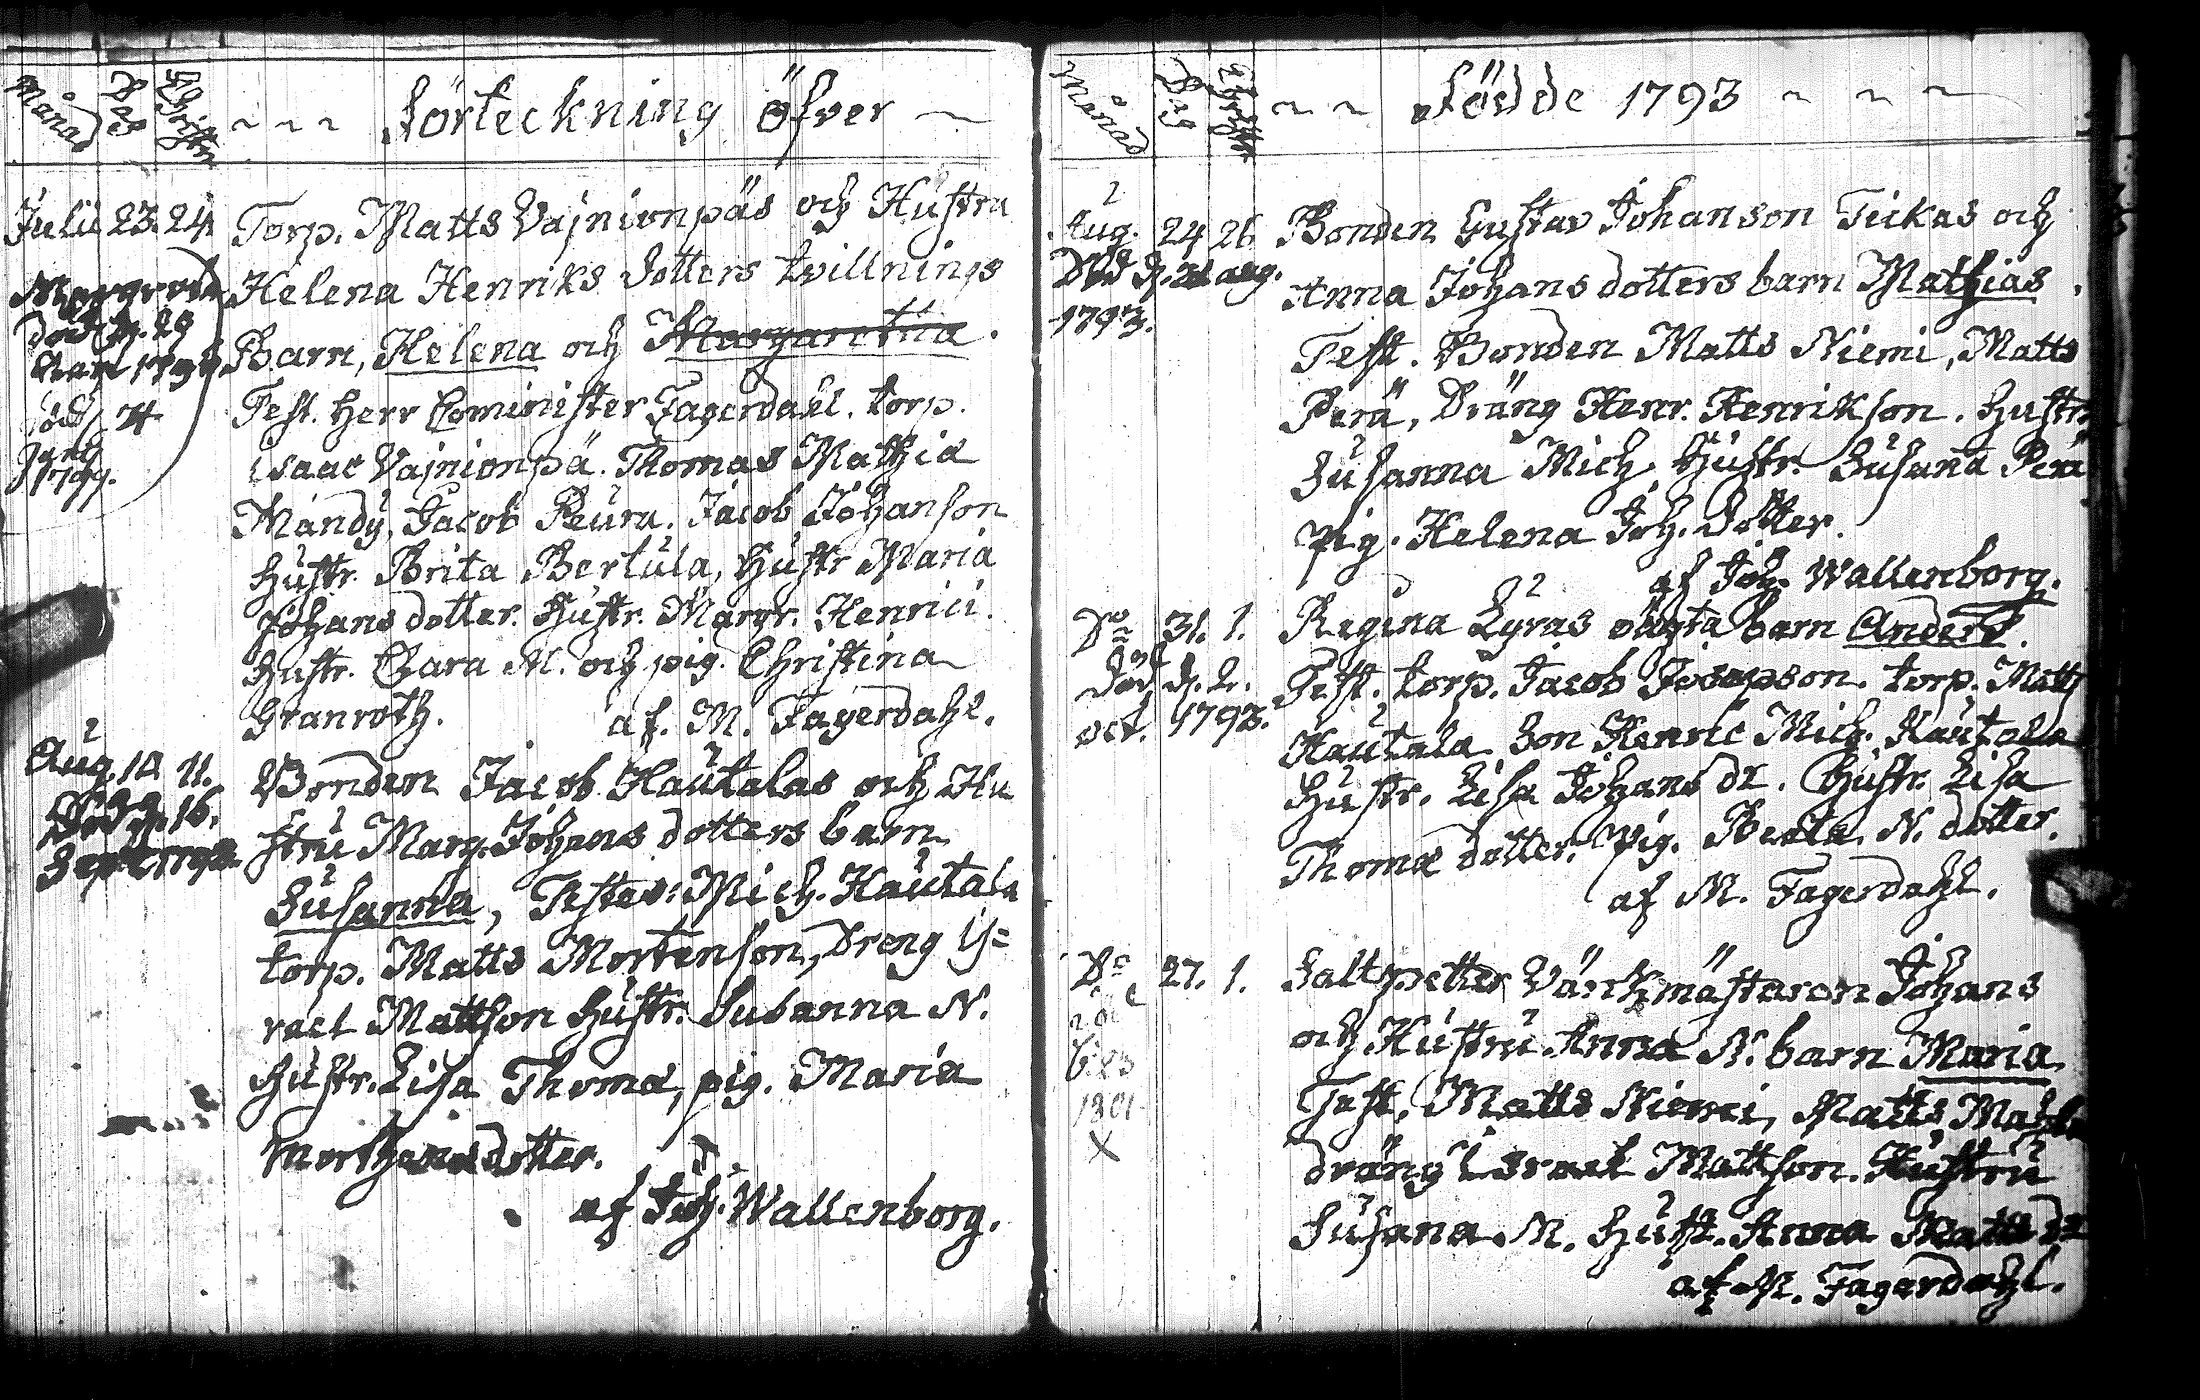 Månad Dag Christn ~ ~ ~ Förteckning öfver ~
Julii 23. 24. Torp. Matts Vajnionpäs och Hustru
Helena Henriks dotters tvillnings
Barn, Helena och Margaretha.
död d. 29
1799.
Test. Herr Cominister Fagerdahl. torp.
Isaac Vajnionpä. Thomas Mathia
Mandÿ, Jacob Peura. Jacob Johanson
Hustr. Brita Bertula, Hustr Maria
Johans dotter. Hustr. Margr. Henrici.
Hustr. Clara M. och pig. Christina
Granroth. af. M. Fagerdahl.
Aug. 10 11. Bonden Jacob Hautalas och Hu
Död d. 16. stru Marg. Johans dotters barn
Susanna, Testes: Mich. Hautala
torp. Matts Mortenson, Dreng Is=
rael Mattson Hustr. Susanna N.
Hustr. Lisa Thomæ, pig. Maria
Morthensdotter.
af Joh. Wallenborg.
Månad Dag Christn ~ ~ Födde 1793 ~ ~ ~
Aug. 24 26 Bonden Gustav Johanson Tickas och
Död d. 31 aug. Anna Johans dotters barn Mathias.
1793. Test. Bonden Matts Niemi, Matts
Perä, Dräng Henr. Henrikson. Hustr.
Susanna Mich. Hustr. Susana Perä
pig. Helena Joh. dotter.
af Joh. Wallenborg.
Do 31. 1. Regina Lyras oägta barn Anders.
Död d. 2. Test. torp. Jacob Josepson. torp. Matts
oct. 1793. Hautala Son Henric Mich. Hautala
Hustr. Lisa Johans dr. Hustr. Lisa
Thomæ dotter. Pig. Beata N. dotter.
af M. Fagerdahl.
Do 27. 1. Saltpetter Värckmästaren Johans
och Hustru Anna N. barn Maria
1801 Test. Matts Niemi, Matts
X dräng Israel Mattson. Hustru
Susana M. Hust. Anna Matts dr
af M. Fagerdahl.